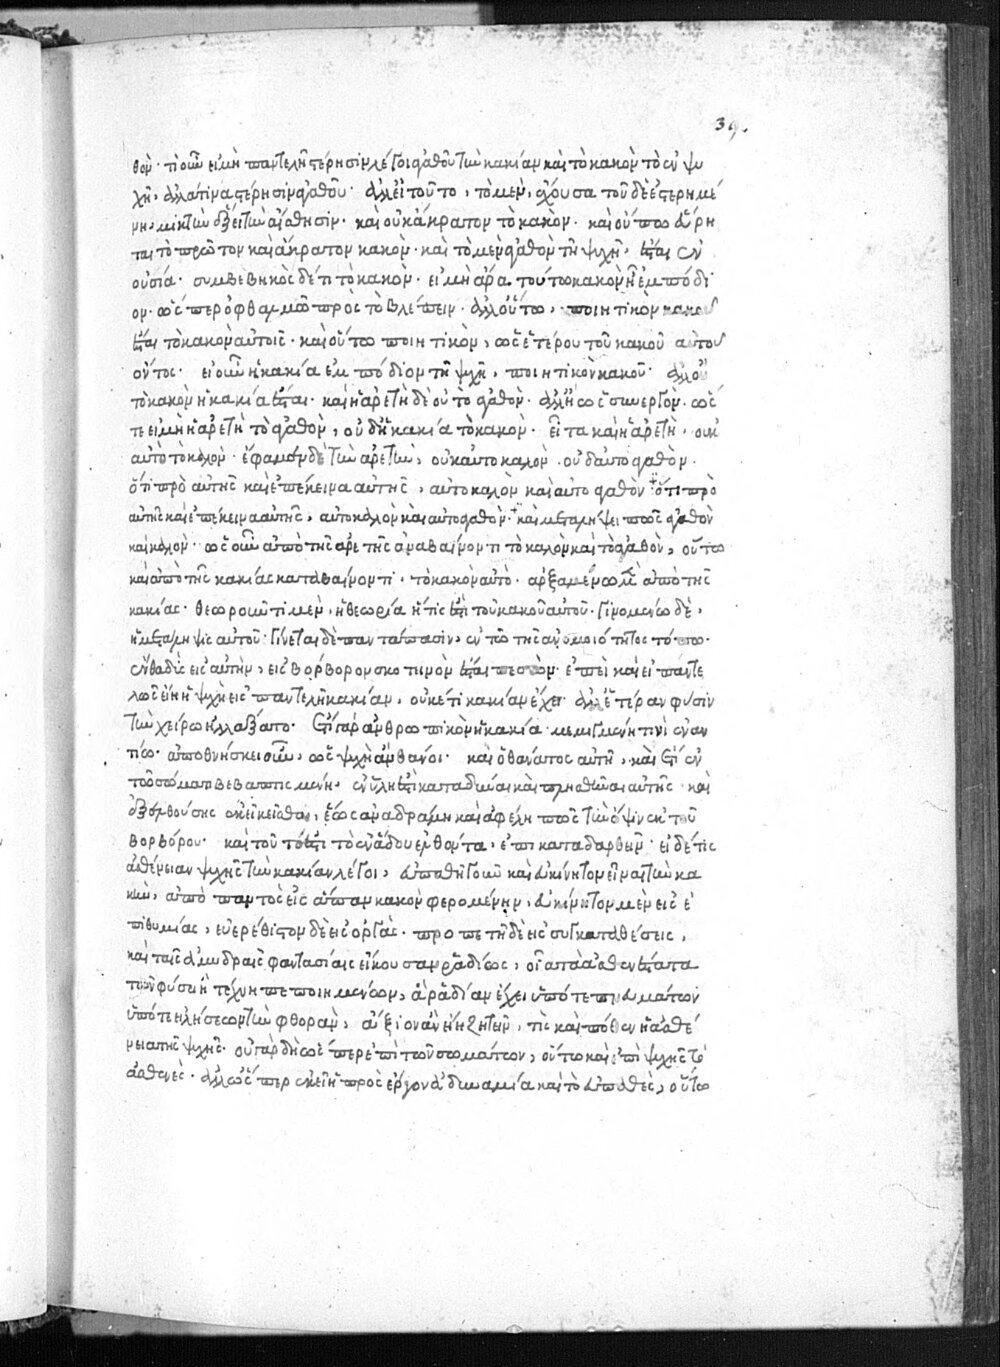 39.
θόν· τί οὖν εἰ μὴ παντελῆ στέρησιν λέγοι ἀγαθοῦ τὴν κακίαν καὶ τὸ κακὸν τὸ ἐν ψυ
χῇ, ἀλλά τινα στέρησιν ἀγαθοῦ· ἀλλ' εἰ τοῦτο, τὸ μὲν, ἔχουσα τοῦ δὲ ἐστερημέ
νη, μικτὴν ἕξει τὴν διάθεσιν· καὶ οὐκ ἄκρατον τὸ κακόν· καὶ οὔπω εὕρη
ται τὸ πρῶτον καὶ ἄκρατον κακόν· καὶ τὸ μὲν ἀγαθὸν τῇ ψυχῇ, ἔσται ἐν
οὐσίᾳ· συμβεβηκὸς δέ τι τὸ κακόν· εἰ μὴ ἄρα τούτῳ κακὸν ᾗ ἐμπόδι
ον· ὥσπερ ὀφθαλμῷ πρὸς τὸ βλέπειν· ἀλλ' οὕτω, ποιητικὸν κακοῦ
ἔσται τὸ κακὸν αὐτοῖς· καὶ οὕτω ποιητικὸν, ὡς ἑτέρου τοῦ κακοῦ αὐτοῦ
ὄντος· εἰ οὖν ἡ κακία ἐμπόδιον τῇ ψυχῇ, ποιητικὸν κακοῦ· ἀλλ' οὐ
τὸ κακὸν ἡ κακία ἔσται· καὶ ἡ ἀρετὴ δὲ οὐ τὸ ἀγαθόν· ἀλλ' ἢ ὡς συνεργόν· ὥσ
τε εἰ μὴ ἡ ἀρετὴ τὸ ἀγαθὸν, οὐδ' ἡ κακία τὸ κακόν· εἶτα καὶ ἡ ἀρετὴ, οὐκ
αὐτὸ τὸ καλόν· ἔφαμεν δὲ τὴν ἀρετὴν, οὐκ αὐτοκαλόν· οὐδ' αὐτοαγαθόν·
ὅτι πρὸ αὐτῆς καὶ ἐπέκεινα αὐτῆς, αὐτοκαλὸν καὶ αὐτοαγαθὸν· ὅτι πρὸ
αὐτῆς καὶ ἐπέκεινα αὐτῆς, αὐτοκαλὸν καὶ αὐτοαγαθόν· καὶ μεταλήψει πως ἀγαθὸν
καὶ καλόν· ὡς οὖν ἀπὸ τῆς ἀρετῆς ἀναβαίνοντι τὸ καλὸν καὶ τὸ ἀγαθὸν, οὕτω
καὶ ἀπὸ τῆς κακίας καταβαίνοντι· τὸ κακὸν αὐτό· ἀρξαμένῳ μὲν ἀπὸ τῆς
κακίας· θεωροῦντι μὲν, ἡ θεωρία ἥτις ἐστὶ τοῦ κακοῦ αὐτοῦ· γινομένῳ δὲ,
ἡ μετάληψις αὐτοῦ· γίνεται δὲ παντάπασιν, ἐν τῷ τῆς ἀνομοιότητος τόπῳ·
ἔνθα δὺς εἰς αὐτὴν, εἰς βόρβορον σκοτεινὸν ἔσται πεσών· ἐπεὶ καὶ εἰ παντε
λῶς εἴη ἡ ψυχὴ εἰς παντελῆ κακίαν, οὐκέτι κακίαν ἔχει· ἀλλ' ἑτέραν φύσιν
τὴν χείρω ἠλλάξατο· ἔτι γὰρ ἀνθρωπικὸν ἡ κακία μεμιγμένη τινὶ ἐναν
τίῳ· ἀποθνήσκει οὖν, ὡς ψυχὴ ἂν θάνοι· καὶ ὁ θάνατος αὐτῇ, καὶ ἔτι ἐν
τῷ σώματι βεβαπτισμένῃ· ἐν ὕλῃ ἐστὶ καταδῦναι καὶ πλησθῆναι αὐτῆς· καὶ
ἐξελθούσης ἐκεῖ κεῖσθαι, ἕως ἀναδράμῃ καὶ ἀφέλῃ πως τὴν ὄψιν ἐκ τοῦ
βορβόρου· καὶ τοῦτό ἐστι τὸ ἐν ἅδου ἐλθόντα, ἐπικαταδαρθεῖν· εἰ δέ τις
ἀσθένειαν ψυχῆς τὴν κακίαν λέγοι, εὐπαθῆ γοῦν καὶ εὐκίνητον εἶναι τὴν κα
κὴν, ἀπὸ παντὸς εἰς ἅπαν κακὸν φερομένην, εὐκίνητον μὲν εἰς ἐ
πιθυμίας, εὐερέθιστον δὲ εἰς ὀργάς· προπετῆ δὲ εἰς συγκαταθέσεις,
καὶ ταῖς ἀμυδραῖς φαντασίαις εἴκουσαν ῥᾳδίως, οἷα τὰ ἀσθενέστατα
τῶν φύσει ἢ τέχνῃ πεποιημένων, ἃ ῥᾳδίαν ἔχει ὑπό τε πνευμάτων
ὑπό τε εἱλήσεων τὴν φθορὰν, ἄξιον ἂν εἴη ζητεῖν, τίς καὶ πόθεν ἡ ἀσθέ
νεια τῆς ψυχῆς· οὐ γὰρ δὴ ὥσπερ ἐπὶ τῶν σωμάτων, οὕτω καὶ ἐπὶ ψυχῆς τὸ
ἀσθενές· ἀλλ' ὥσπερ ἐκεῖ ἡ πρὸς ἔργον ἀδυναμία καὶ τὸ εὐπαθὲς, οὕτω